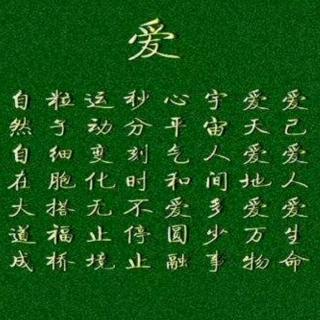 爱
爱己爱人爱生命
爱天爱地爱万物
宇宙人间多少事
心平气和爱圆融
秒分刻时不停止
运动变化无止境
粒子细胞搭福桥
自然自在大道成